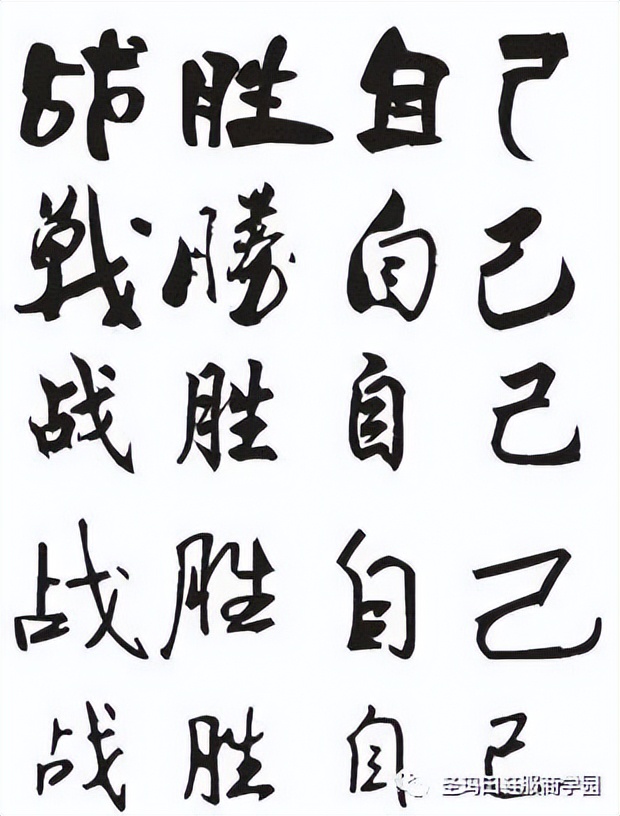 战胜自己
戰勝自己
战胜自己
战胜自己
战胜自己
圣玛田鞋服商学园